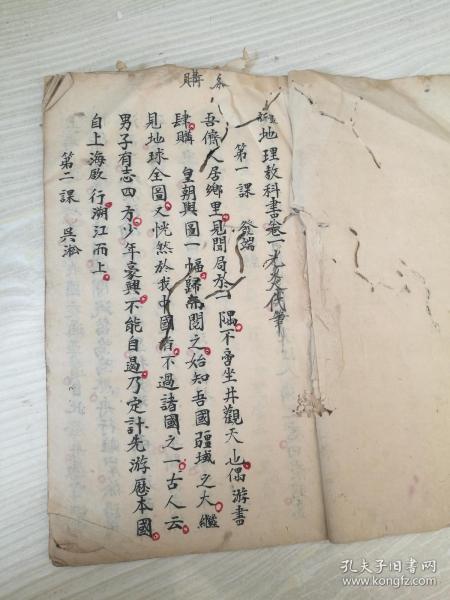 購
地理教科書卷一
第一課 發端
吾儕人居鄉里見聞局於一隅不啻坐井觀天也偶游書
肆購 皇朝輿圖一幅歸而閱之始知吾國疆域之大繼
見地球全圖又恍然於我中國者不過諸國之一古人云
男子有志四方少年豪興不能自過乃定計先游歷本國
自上海啟行溯江而上
第二課 吳淞
孔夫子旧书网
www.kongfz.com